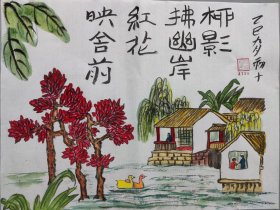 柳影
拂幽岸
紅花
映舍前
乙巳九月初十